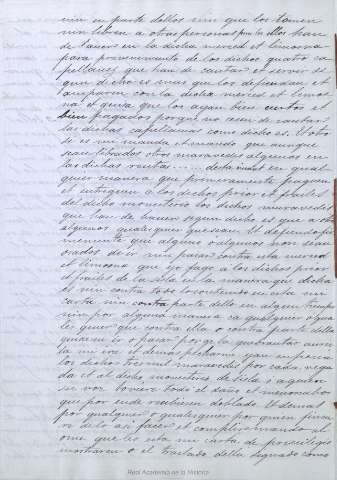 nin en parte dellos nin que los tomen
nin libren a otras personas pues los ellos han
de haver en la dicha merced et limosna
para provenimiento de los dichos quatro ca
pellanes que han de cantar et servir se
gun dicho es mas que los defiendan et
amparen con la dicha merced et limos
na et quiva que los ayan bien ciertos et
bien pagados porque no cesen de cantar
las dichas capellanias como dicho es. Et otro
si es mi manda et mando que aunque
sean librados otros maravedis algunos en
las dichas rentas dichas en qual
quier manera que primeramente paguen
et entreguen a los dichos prior et frailes
del dicho monesterio los dichos maravedis
que han de haver segun dicho es que a otros
algunos qualesquier que sean. Et defiendo fir
memente que alguno o algunos non sean
osados de ir nin pasar contra esta merced
et limosna que yo fago a los dichos prior
et frailes de la sisla en la manera que dicha
es nin contra todo lo contenido en esta mi
carta nin contra parte dello en algun tiempo
nin por alguna manera ca qualquier o qua
lesquier que contra ella o contra parte della
quisieren ir o pasar por gela quebrantar avria
la mi ira et demas pecharme yan en pena
los dichos tres mil maravedis por cada vega
da et al dicho monesterio de sisla o a quien
su voz toviere todo el daño et menoscabo
que por ende recibieren doblado. Et demas
por qualquier o qualesquier por quien fincar
de lo asi facer et complir mando al
ome que les esta mi carta de previllegio
mostrare o el traslado della signado como
Real Academia de la Historia